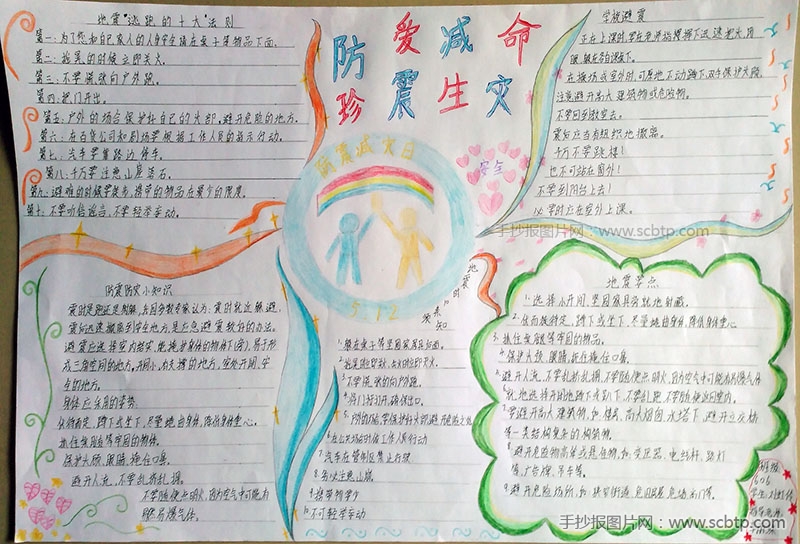 地震"逃跑的十大"法则
第一:为了您和自己家人的人身安全请在桌子等物品下面。
第二:摇晃的时候立即关火。
第三:不要慌张向户外跑。
第四:把门开出。
第五:户外的场合保护住自己的头部,避开危险的地方。
第六:在百货公司和剧场要根据工作人员的指示行动。
第七:汽车要靠路边停车。
第八:千万要注意山崖落石。
第九:避难的时候要徒步,携带的物品在最少的限度。
第十:不要听信谣言,不要轻举妄动。
防爱减命
珍震生灾
防震减灾日
5.12
安全
学校避震
正在上课时,要在老师指挥下迅速抱头,闭
眼,躲在各自课桌下。
在操场或室外时,可原地不动蹲下,双手保护头部,
注意避开高大建筑物或危险物。
不要回到教室去。
震后应当有组织地撤离。
千万不要跳楼!
也不可站在窗外!
不要到阳台上去!
必要时应在室外上课。
手抄报图片网:www.scbtp.com
防震防灾小知识
震时是跑还是躲,我国多数专家认为:震时就近躲避,
震后迅速撤离到安全地方,是应急避震较好的办法。
避震应选择室内结实、能掩护身体的物体下(旁)、易于形
成三角空间的地方,开间小、有支撑的地方,室外开阔、安
全的地方。
身体应采用的姿势:
伏而待定,蹲下或坐下,尽量蜷曲身体,降低身体重心。
抓住桌腿等牢固的物体。
保护头颈、眼睛、掩住口鼻。
避开人流,不要乱挤乱拥。
不要随便点明火,因为空气中可能有
易燃易爆气体。
地震时
1.躲在桌子等坚固家具的下面
2.摇晃时立即关火,失火时立即灭火。
3.不要慌张的向户外跑。
4.将门打开,确保出口。
6.在公共场所时依工作人员行动
7.汽车在管制区禁止行驶
8.务必注意山崖
9.携带物要少
10.不可轻举妄动
地震要点
1.选择小开间、坚固家具旁就地躲藏。
2.伏而待定,蹲下或坐下,尽量蜷曲身体,降低身体重心
3.抓住桌腿等牢固的物品。
4.保护头颈、眼睛,掩住口鼻。
5.避开人流,不要乱挤乱拥,不要随便点明火,因为空气中可能有易燃易爆气体
7.要避开高大建筑物,如楼房、高大烟囱、水塔下,避开立交桥
等一类结构复杂的构筑物。
8.避开危险物高耸或悬挂物,如:变压器、电线杆、路灯
、广告牌、吊车等。
9.避开危险场所,如:狭窄街道、危旧房屋、危墙、
班级
606
手抄报图片网:www.scbtp.com